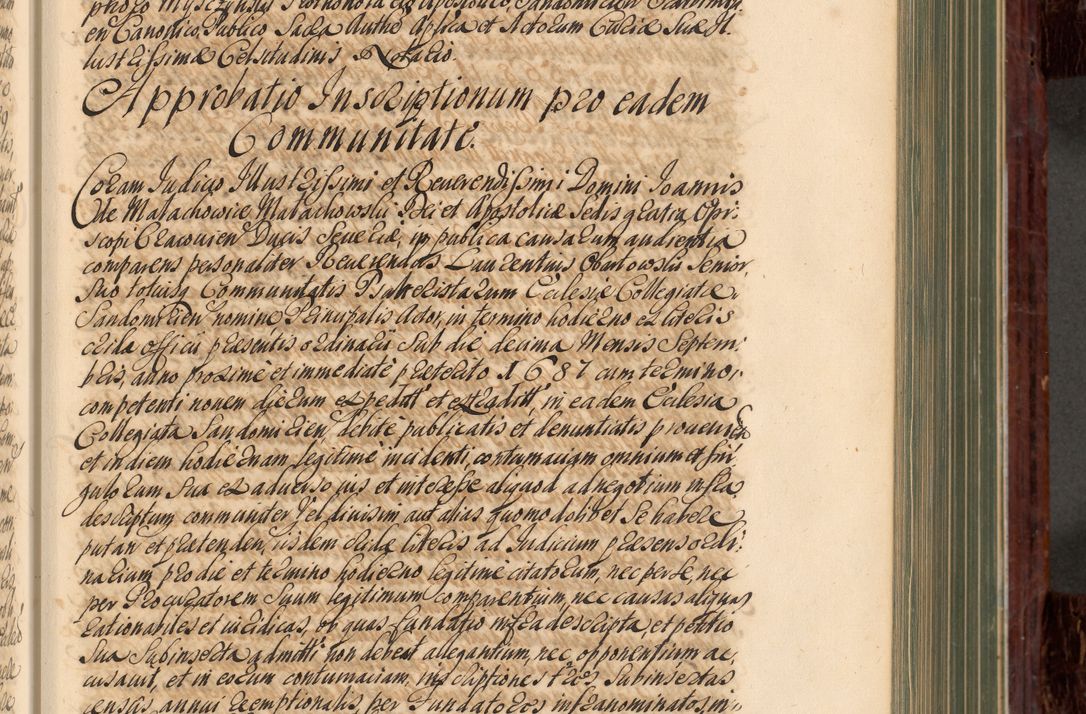 en Canonico, Publico Sacra Autho Aplica et Actorum Curiæ Suæ Il
lustrissimæ Celsitudinis Notario.
Approbatio Inscriptionum pro eadem
Communitate.
Coram Iudicio Illustrissimi et Reverendissimi Domini Ioannis
de Małachowice Małachowski Dei et Apostolicæ Sedis gratia Epi:
scopi Cracovien Ducis Severiæ, in publica causarum audientia
comparens personaliter Reverendus Laurentius Obartowski Senior,
suo totiusq Communitatis Psalteristarum Ecclesiæ Collegiatæ
Sandomirien nomine Principalis Actor, in termino hodierno ex literis
cridæ officii præsentis ordinarii sub die decima Mensis Septem:
bris, anno proxime et immediate præterito 1687 cum termino
competenti novem dierum expedit et extradit, in eadem Ecclesia
Collegiata Sandomirien, debite publicatis et denuntiatis provenien
et in diem hodiernam legitime incidenti, contumaciam omnium et sin
gulorum sua ex adverso jus et interesse aliquod ad negotium infra
descriptum communiter vel divisim, aut alias quomodolibet se habere
putan et prætenden, iisdem cridæ literis ad Iudicium præsens ordi:
narium pro die et termino hodierno legitime citatorum, nec per se, nec
per Procuratorem suum legitimum comparentium, nec causas aliquas
rationabiles et iuridicas, ob quas fundatio infra descripta, et petitio
sua subinserta admitti non debeat allegantium, nec opponentium ac,
cusavit, et in eorum contumaciam, inscriptiones tres subinsertas
census annui reemptionalis, per Fundatores infranominatos, in: